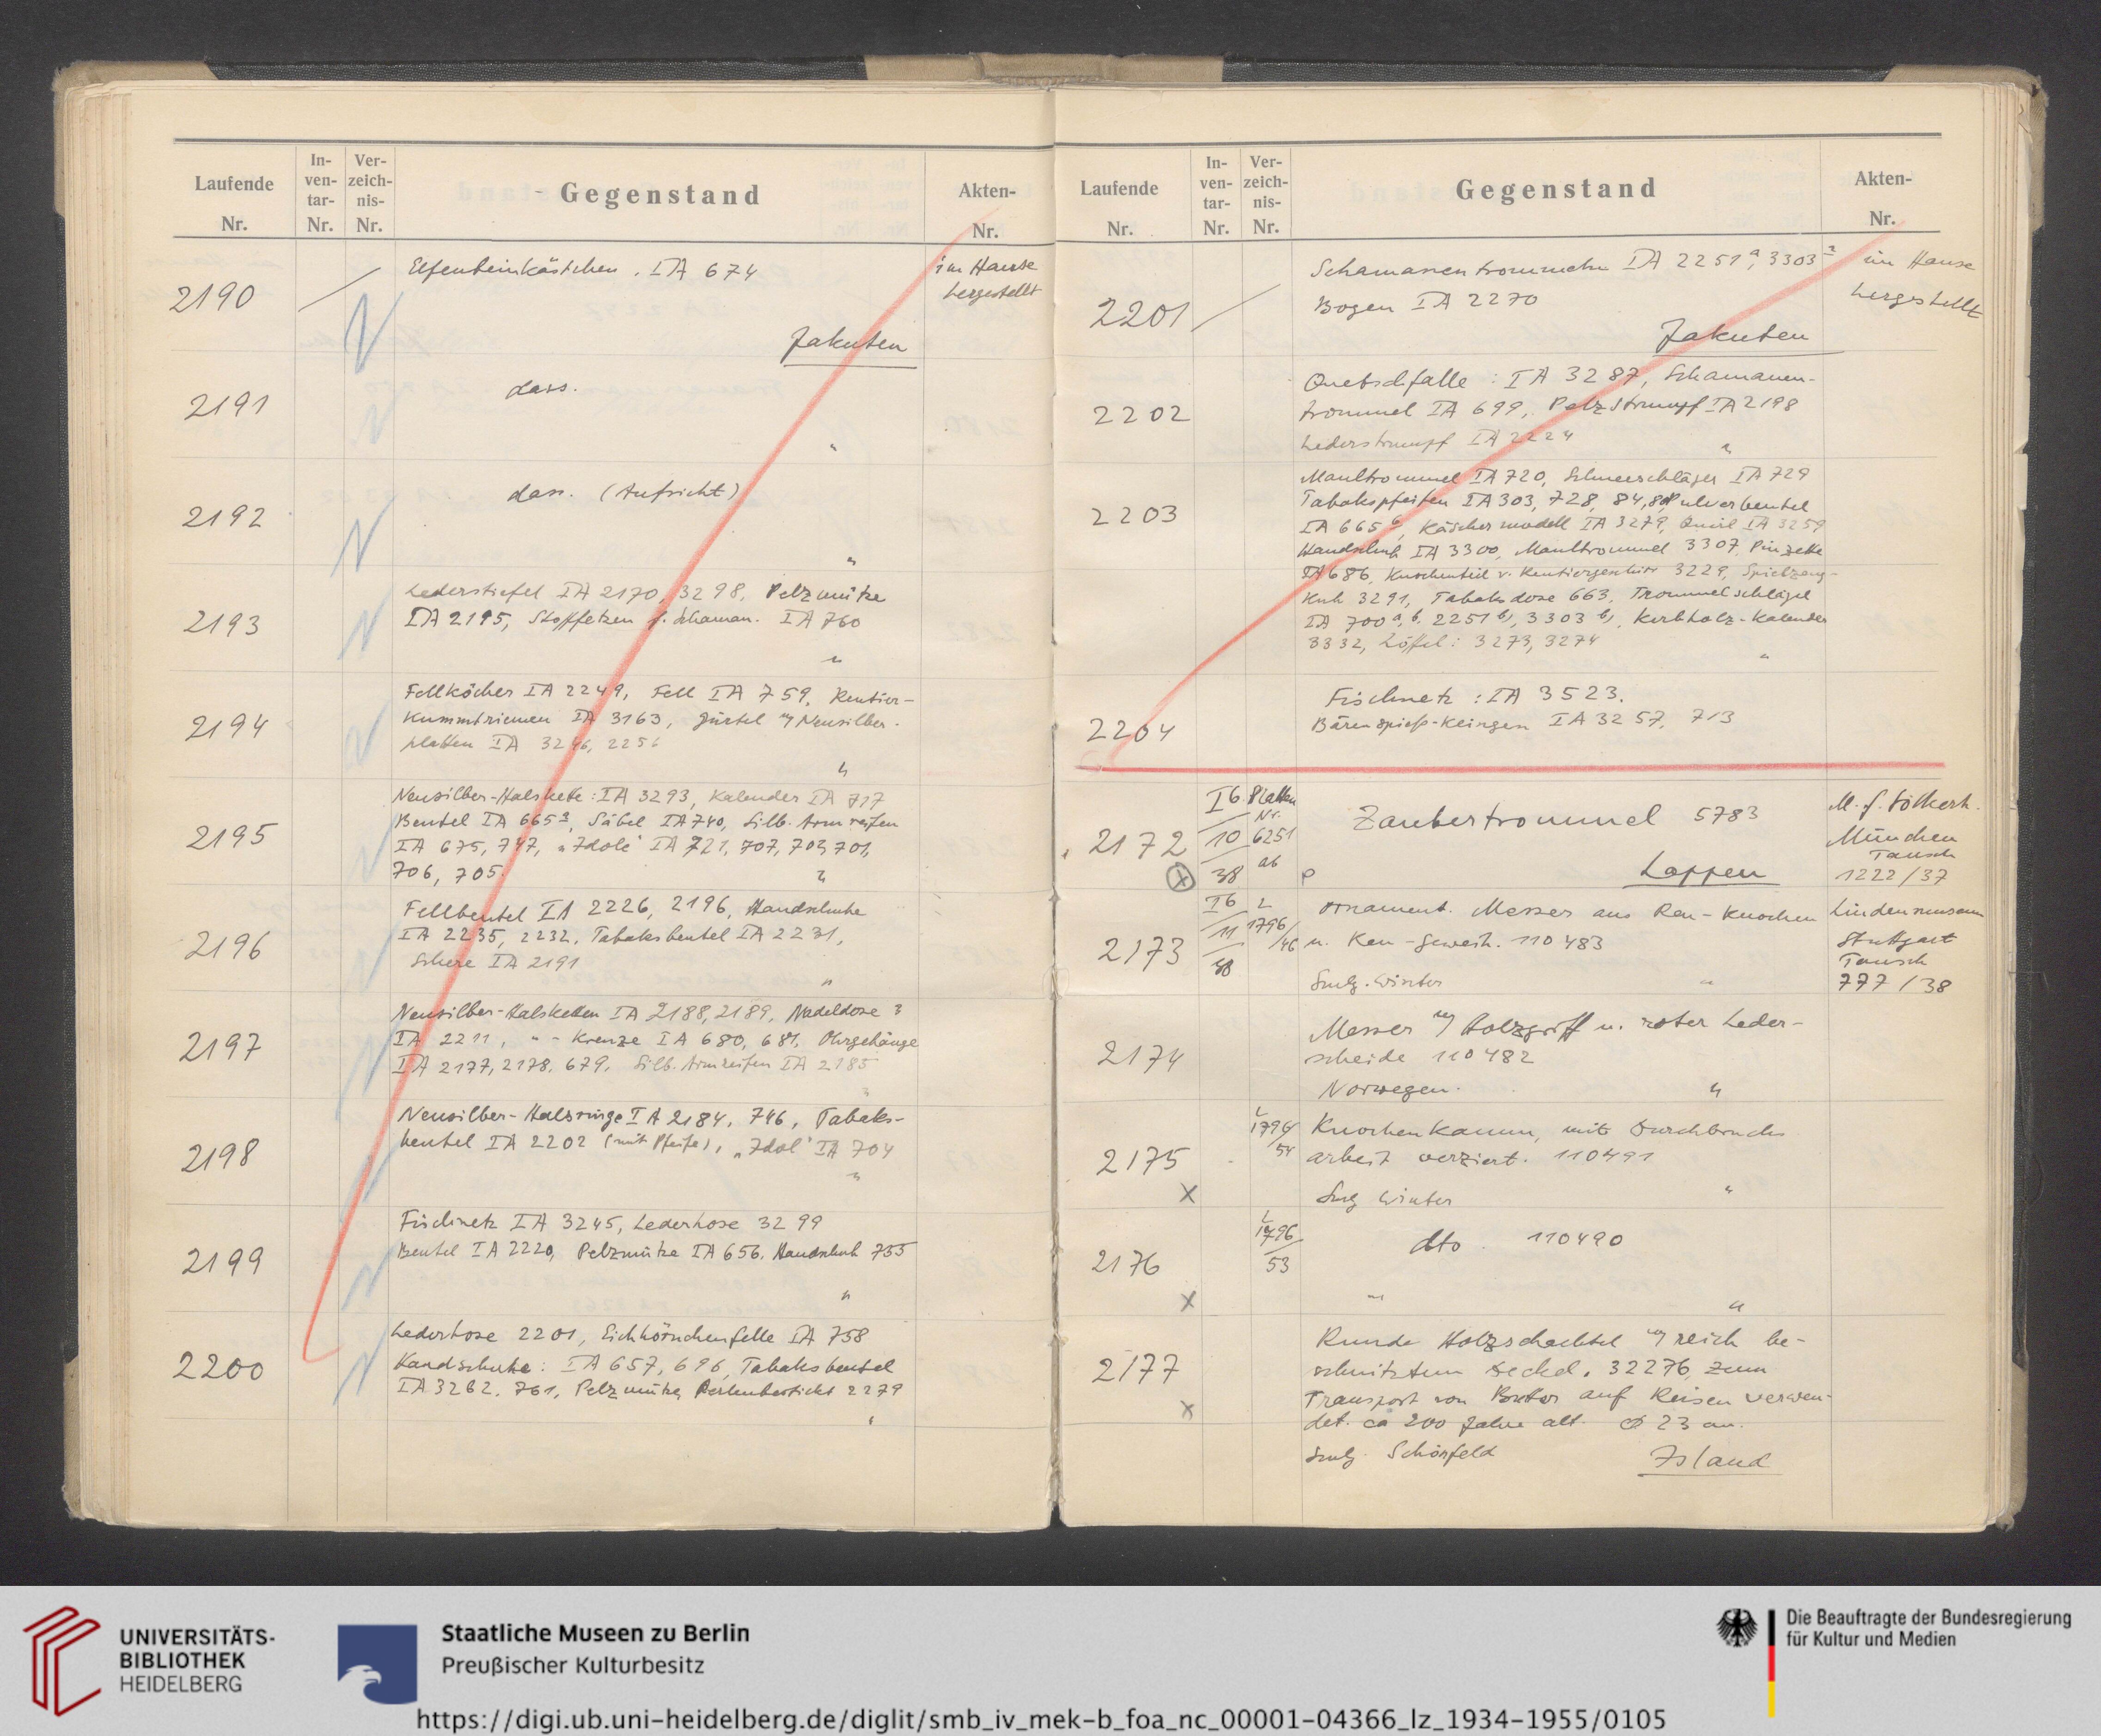 Laufende
Nr.
In-
ven-
tar-
Nr.
Ver-
zeich-
nis-
Nr.
Gegenstand
Akten-
Nr.
2190
Elfenbeinkästchen. IA 674
im Hause
hergestellt
Jakuten
2191
dass.
"
2192
dass. (Aufsicht)
"
2193
Lederstiefel IA 2170, 3298, Pelzmütze
IA 2195, Stoffetzen f. Schaman. IA 760
"
2194
Fellköcher IA 2249, Fell IA 759, Rentier-
Kummtriemen IA 3163, Gürtel m/ Neusilber-
platten IA 3246, 2256
"
2195
Neusilber-Halskette: IA 3293, Kalender IA 717
Beutel IA 665a, Säbel IA 740, Silb. Armreifen
IA 675, 747, "Idole" IA 721, 707, 702, 701,
706, 705.
"
2196
Fellbeutel IA 2226, 2196, Handschuhe
IA 2235, 2232, Tabaksbeutel IA 2231,
Schere IA 2191
"
2197
Neusilber-Halsketten IA 2188, 2189, Nadeldose
IA 2211, " - Kreuze IA 680, 681, Ohrgehänge
IA 2177, 2178, 679, Silb. Armreifen IA 2185
"
2198
Neusilber-Halsringe IA 2184, 746, Tabaks-
beutel IA 2202 (mit Pfeife), "Idol" IA 704
"
2199
Fischnetz IA 3245, Lederhose 3299
Beutel IA 2220, Pelzmütze IA 656, Handschuh 755
"
2200
Lederhose 2201, Eichhörnchenfelle IA 758
Handschuhe: IA 657, 696, Tabaksbeutel
IA 3262, 761, Pelzmütze, Perlenbestickt 2279
"
Laufende
Nr.
In-
ven-
tar-
Nr.
Ver-
zeich-
nis-
Nr.
Gegenstand
Akten-
Nr.
2201
Schamanentrommeln IA 2251a, 3303a
Bogen IA 2270
im Hause
hergestellt
Jakuten
2202
Quetschfalle: IA 3287, Schamanen-
trommel IA 699, Pelzstrumpf IA 2198
Lederstrumpf IA 2224
"
2203
Maultrommel IA 720, Schneeschläger IA 729
Tabakspfeifen IA 303, 728, 84, Pulverbeutel
IA 665b, Käschermodell IA 3279, Quirl IA 3259
Handschuh IA 3300, Maultrommel 3307, Pinzette
IA 686, Knochenteil v. Rentiergeschirr 3229, Spielzeug-
Kuh 3291, Tabaksdose 663, Trommelschlägel
IA 700a,b, 2251b, 3303b, Kerbholz-Kalender
3332, Löffel: 3273, 3274
"
2204
Fischnetz: IA 3523.
Bärenspiess-Klingen IA 3257, 713
2172
IB
10
38
Platten
Nr.
6251
ab
Zaubertrommel 5783
Lappen
M. f. Völkerk.
München
Tausch
1222/37
2173
IB
11
38
L
1796/
46
Ornament. Messer aus Ren-Knochen
u. Ren-Geweih. 110483
Smlg. Winter
"
Lindenmuseum
Stuttgart
Tausch
777/38
2174
Messer m/ Holzgriff u. roter Leder-
scheide 110482
Norwegen.
"
2175
x
L
1796/
54
Knochenkamm, mit Durchbruchs
arbeit verziert. 110491
Smg Winter
"
2176
x
L
1796
53
dto. 110490
"
"
2177
x
Runde Holzschachtel m/ reich be-
schnitztem Deckel. 32276, zum
Transport von Butter auf Reisen verwen-
det. ca 200 Jahre alt. Ø 23 cm.
Smlg. Schönfeld
Island
UNIVERSITÄTS-
BIBLIOTHEK
HEIDELBERG
Staatliche Museen zu Berlin
Preußischer Kulturbesitz
Die Beauftragte der Bundesregierung
für Kultur und Medien
https://digi.ub.uni-heidelberg.de/diglit/smb_iv_mek-b_foa_nc_00001-04366_lz_1934-1955/0105